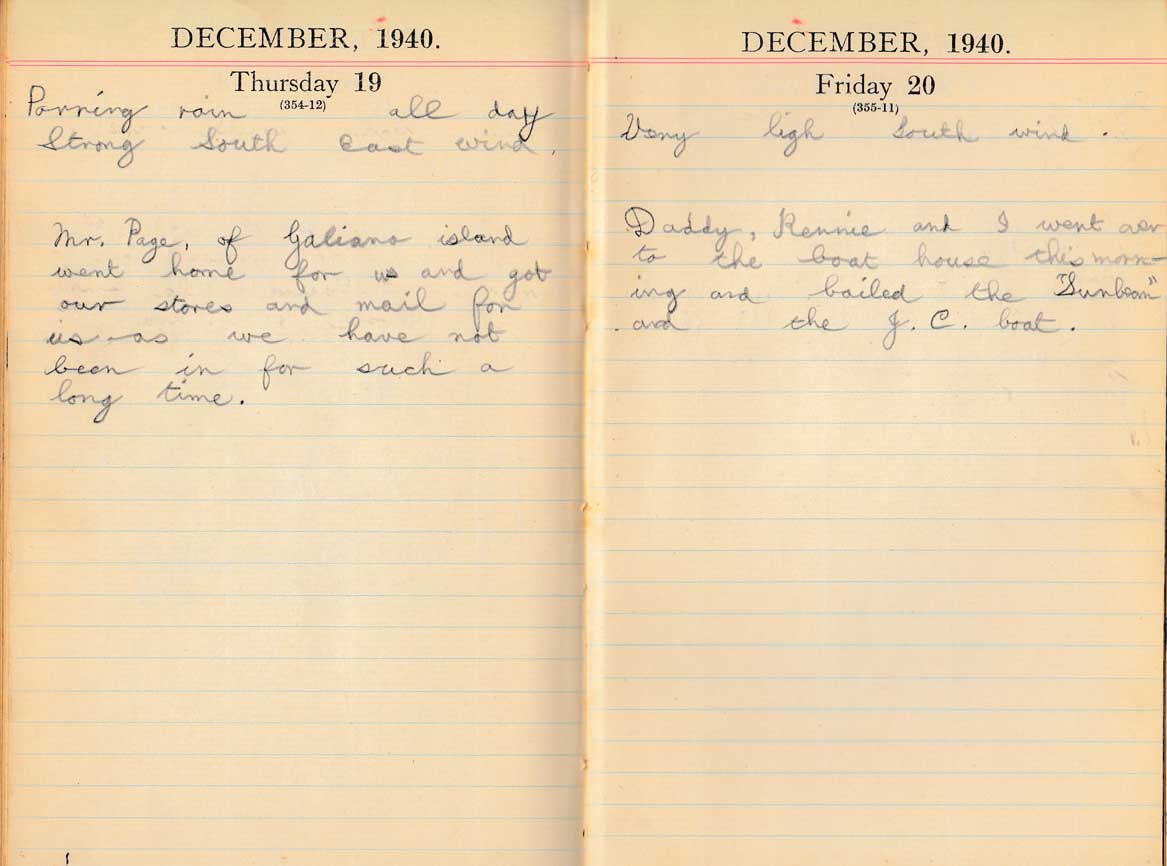 DECEMBER, 1940.
Thursday 19
(354-12)
Porring rain all day
Strong South East wind.
Mr. Page, of Galiano island
went home for us and got
our stores and mail for
us as we have not
been in for such a
long time.
DECEMBER, 1940.
Friday 20
(355-11)
Very ligh South wind.
Daddy, Rennie and I went over
to the boat house this morn-
ing and bailed the "Sunbeam"
and the J. C. boat.